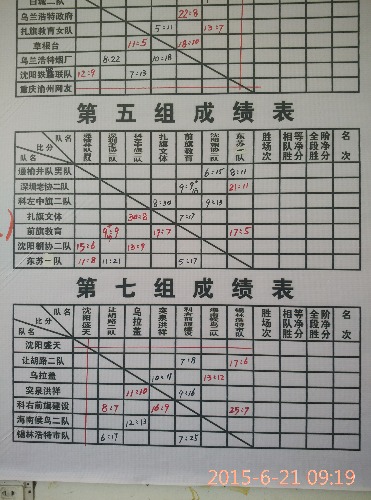 乌兰浩特政府 22:8
扎旗教育女队 5:11 13:7
草根台 11:5 18:10
乌兰浩特烟厂 8:22 10:18
沈阳铁鑫联队 12:9 7:13
重庆渝州网友
第五组成绩表
队名 比分 队名 扎旗文体 前旗教育 东苏一队 胜场次 相等队净胜分 全净段胜分 名次
通榆井队男队 6:15 8:11
深圳老协二队 21:11
科左中旗二队 8:30 9:13
扎旗文体 30:8 7:17
前旗教育 17:7 17:5
沈阳朝协二队 15:6 13:9
东苏一队 11:8 11:21 5:17
第七组成绩表
队名 比分 队名 沈阳盛天 让胡路二队 乌拉盖 突泉洪祥 科右前旗建设 海南候鸟二队 锡林浩特市队 胜场次 相等队净胜分 全净段胜分 名次
沈阳盛天
让胡路二队 7:8 17:6
乌拉盖 10:11 13:12
突泉洪祥 11:10 9:16
科右前旗建设 8:7 16:9 25:7
海南候鸟二队 12:13
锡林浩特市队 6:17 7:25
2015-6-21 09:19